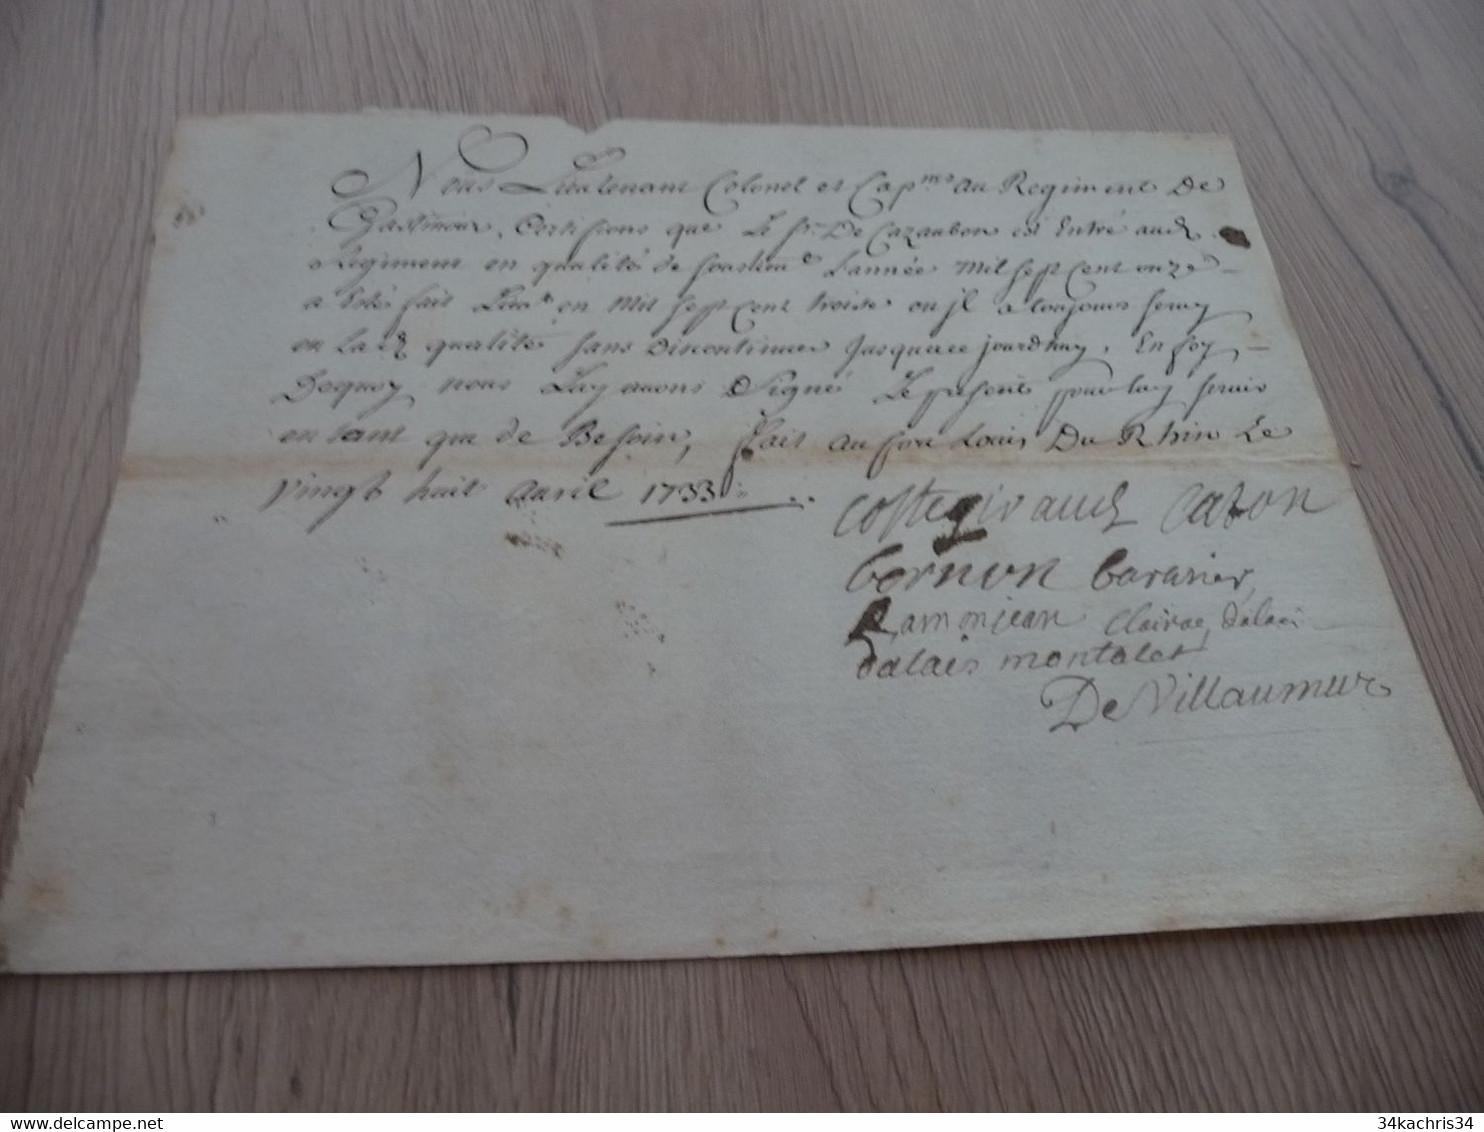 Nous Lieutenant Colonel et Cap.nes au Regiment De
Gastinois, Certifions que Le Sr. De Cazaubon est Entré audt
Regiment en qualité de souslieut. L'année Mil sept cent onze
a Eté fait Lieut. en Mil sept Cent treize ou jl a toujours servy
en Lad. qualité sans Discontinuer Jusqu'a ce jourdhuy, En foy
Dequoy nous Luy avons Signé Le present pour luy servir
en tant que de Besoin, fait au fort Louis Du Rhin Le
vingt huit avril 1733
costegiraud cazon
bernon
Ramonjean Clairac, dalais
dalais montalet
De Villaumur
delcampe.net
34kachris34